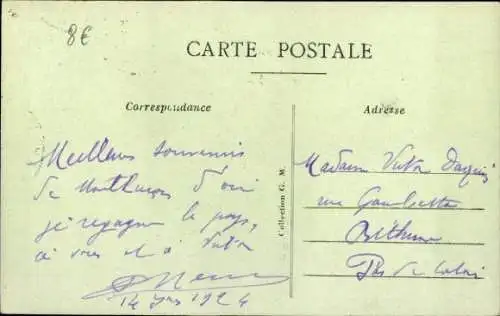 8€
CARTE POSTALE
Correspondance
Meilleurs souvenirs
de Montluçon d'où
je regagne le pays,
à vous et à Victor
1924
Collection G. M.
Adresse
Madame Victor
rue Gambetta
Béthune
Pas de Calais